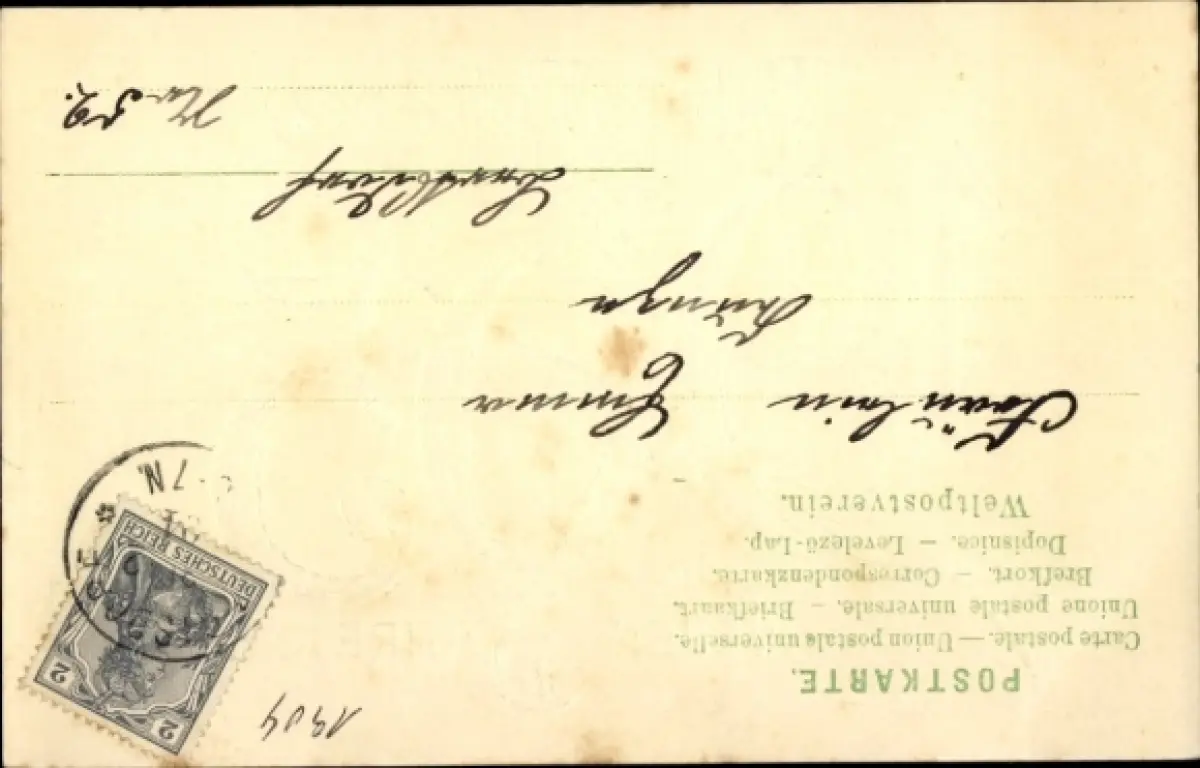 1904
POSTKARTE.
Carte postale. — Union postale universelle.
Unione postale universale. — Briefkaart.
Brefkort. — Correspondenzkarte.
Dopisnice. — Levelező-Lap.
Weltpostverein.
2 2
DEUTSCHES REICH
7N.
Fräulein Emma
No 59.